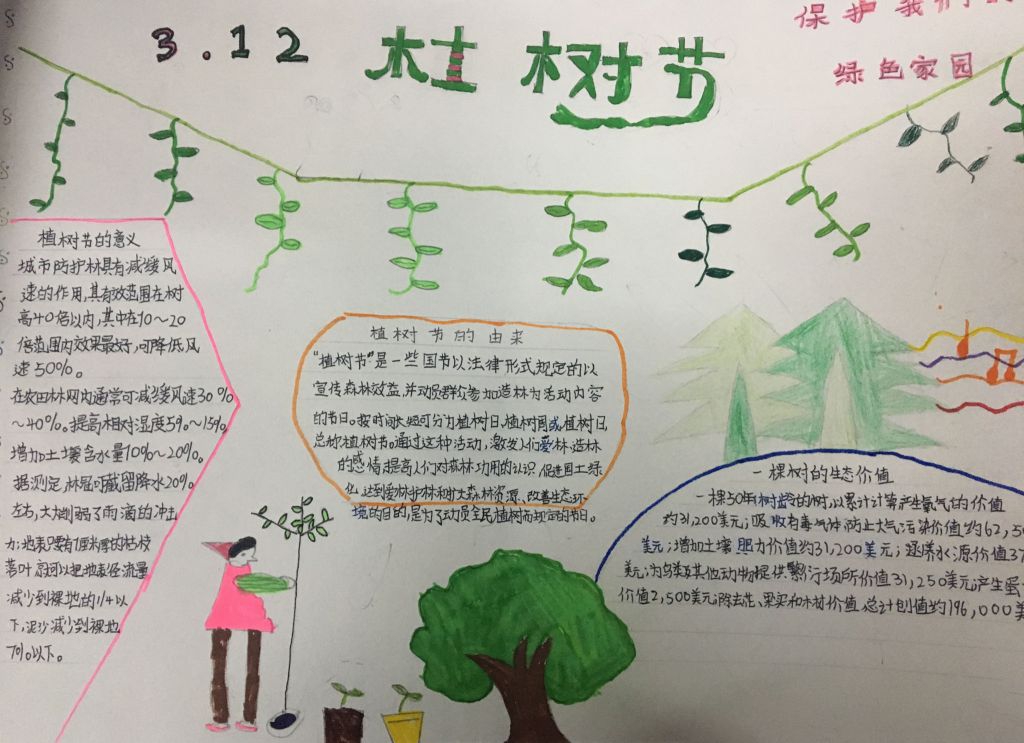 3.12 植树节
保护我们
绿色家园
植树节的意义
城市防护林具有减缓风
速的作用,其有效范围在树
高40倍以内,其中在10~20
倍范围内效果最好,可降低风
速50%。
在农田林网内通常可减缓风速30%
~40%。提高相对湿度5%~15%,
增加土壤含水量10%~20%。
据测定,林冠可截留降水20%
左右,大大削弱了雨滴的冲击
力;地表只要有1厘米厚的枯枝
落叶层可以把地表径流量
减少到裸地的1/4以
下,泥沙减少到裸地
7%以下。
植树节的由来
“植树节”是一些国节以法律形式规定的以
宣传森林效益,并动员群众参加造林为活动内容
的节日。按时间长短可分为植树日,植树周或植树月
总称植树节。通过这种活动,激发人们爱林、造林
的感情,提高人们对森林功用的认识,促进国土绿
化,达到爱林护林和扩大森林资源、改善生态环
境的目的,是为了动员全民植树而规定的节日。
一棵树的生态价值
一棵50年树龄的树,以累计计算产生氧气的价值
约31,200美元;吸收有毒气体,防止大气污染价值约62,5
美元;增加土壤肥力价值约31,200美元;涵养水源价值37
美元;为鸟类及其他动物提供繁衍场所价值31,250美元产生蛋
价值2,500美元;除去花、果实和木材价值,总计创值约196,000美